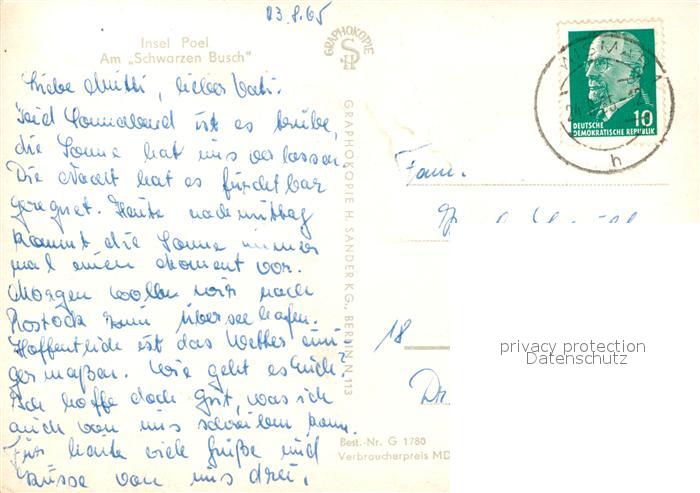 23.8.65
Insel Poel
Am „Schwarzen Busch"
Liebe Mutti, lieber Vati!
Seid Sonnabend ist es trübe,
die Sonne hat uns verlassen.
Die Nacht hat es furchtbar
geregnet. Heute nachmittag
kommt die Sonne immer
mal einen Moment vor.
Morgen wollen wir nach
Rostock zum Überseehafen.
Hoffentlich ist das Wetter eini
germaßen. Wie geht es Euch?
Ich hoffe doch gut, was ich
auch von uns schreiben kann.
Für heute viele Grüße und
Küsse von uns drei.
GRAPHOKOPIE
GRAPHOKOPIE H. SANDER KG., BERLIN N 113
Best.-Nr. G 1780
Verbraucherpreis MD
WISMAR
h
10
DEUTSCHE
DEMOKRATISCHE REPUBLIK
Fam.
18
Dr
privacy protection
Datenschutz